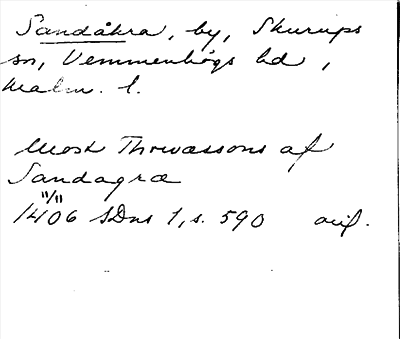 Sandåkra, by, Skurups
sn, Vemmenhögs hd,
Malm. l.
Mosk Throwæssons af
Sandagræ
11/11
1406 SDns 1, s. 590 avif.